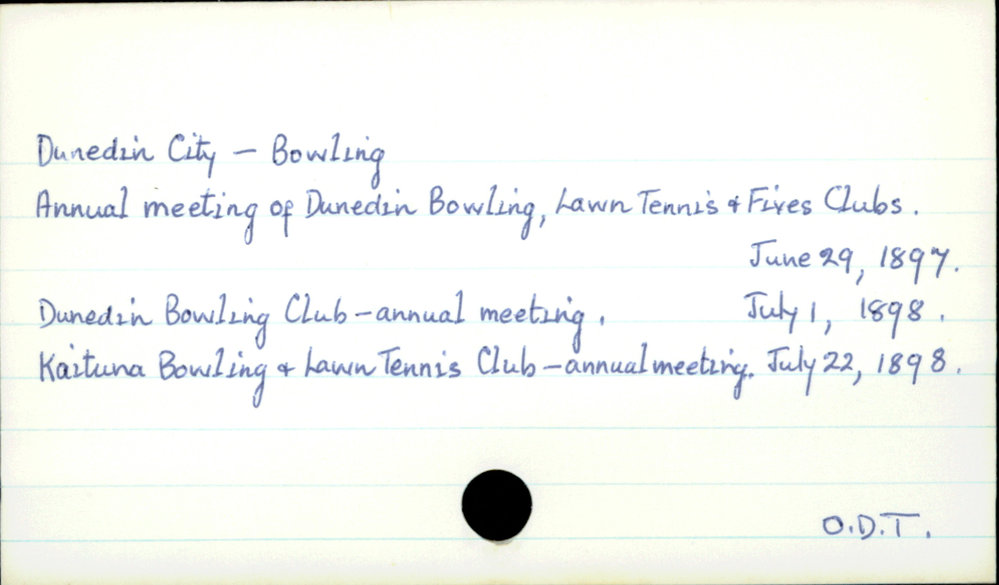 Dunedin City – Bowling
Annual meeting of Dunedin Bowling, Lawn Tennis & Fives Clubs.
June 29, 1897.
Dunedin Bowling Club – annual meeting. July 1, 1898.
Kaituna Bowling & Lawn Tennis Club – annual meeting. July 22, 1898.
O.D.T.